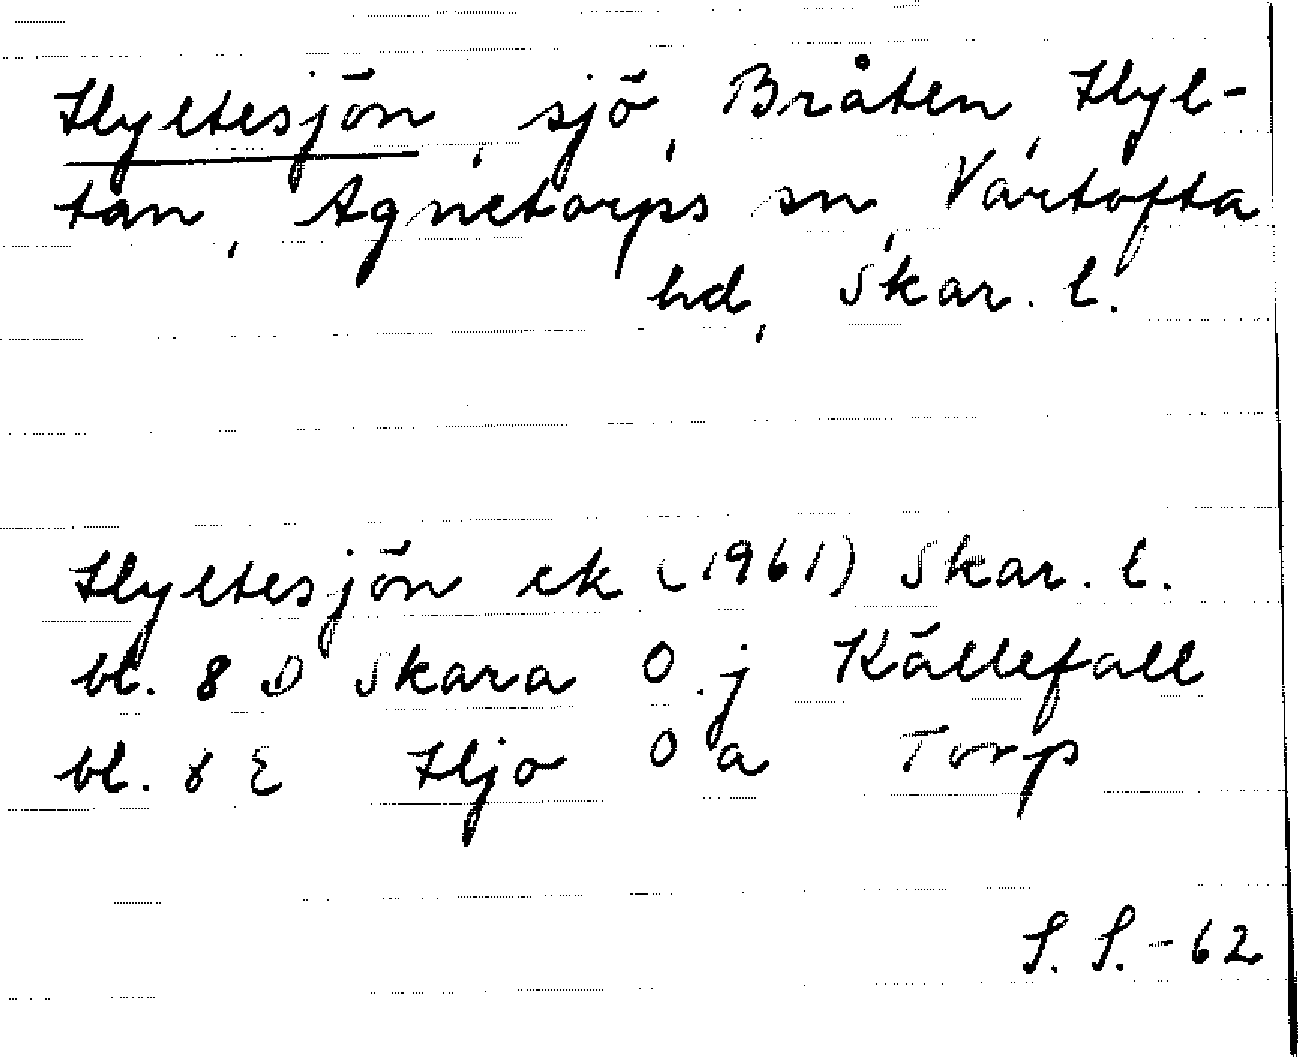 Hyltesjön, sjö, Bråten, Hyl-
tan, Agnetorps sn, Vartofta
hd, Skar. l.
Hyltesjön ek (1961) Skar. l.
bl. 8 D Skara 0 j Källefall
bl. 8 E Hjo 0 a Torp
S. S. -62